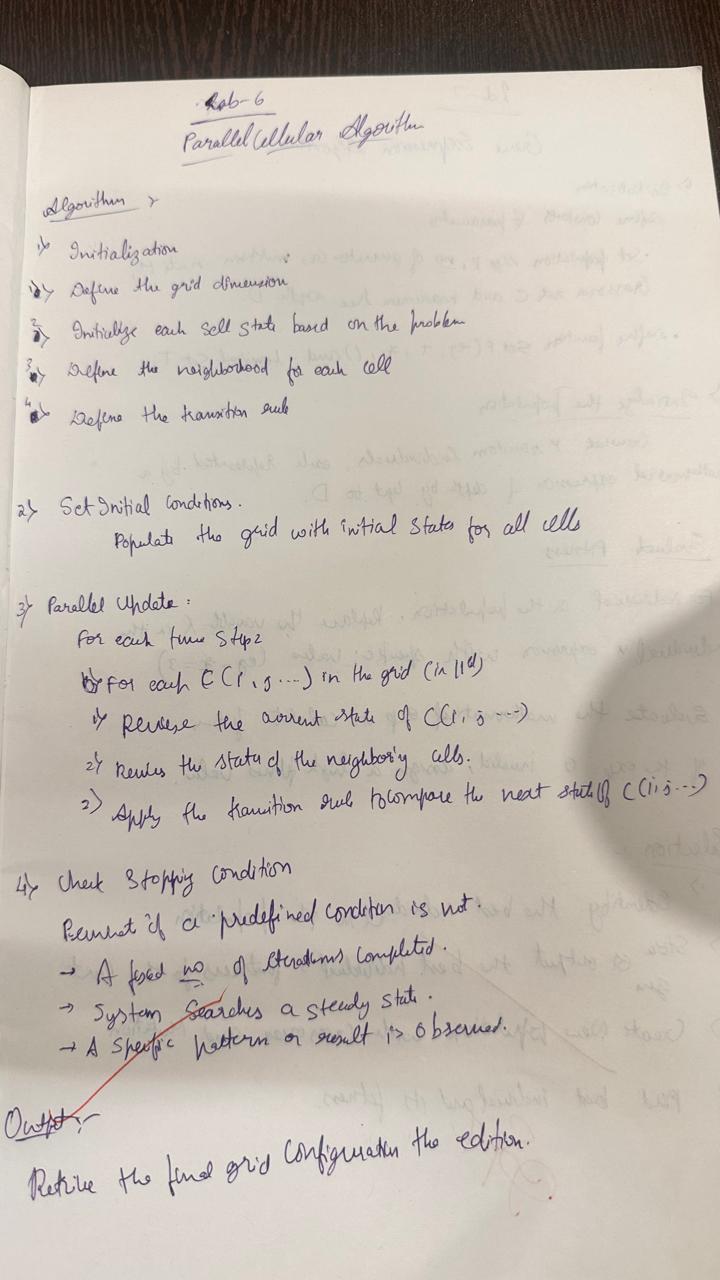 Lab-6
Parallel Cellular Algorithm
Algorithm
1) Initialization
1) Define the grid dimension
2) Initialize each sell state based on the problem
3) Define the neighborhood for each cell
4) Define the transition rule
2) Set Initial Conditions.
Populate the grid with initial states for all cells
3) Parallel Update :
For each time step
For each C(i, j ...) in the grid (in ||el)
1) the current state of C(i, j ...)
2) the state of the cells.
2) Apply the transition rule to compare the next state of C(i, j ...)
4) Check Stopping Condition
if a predefined condition is not.
→ A fixed no of iterations completed.
→ System Searches a steady state.
→ A specific pattern or result is observed.
Output :-
Retrive the final grid configuration the edition.